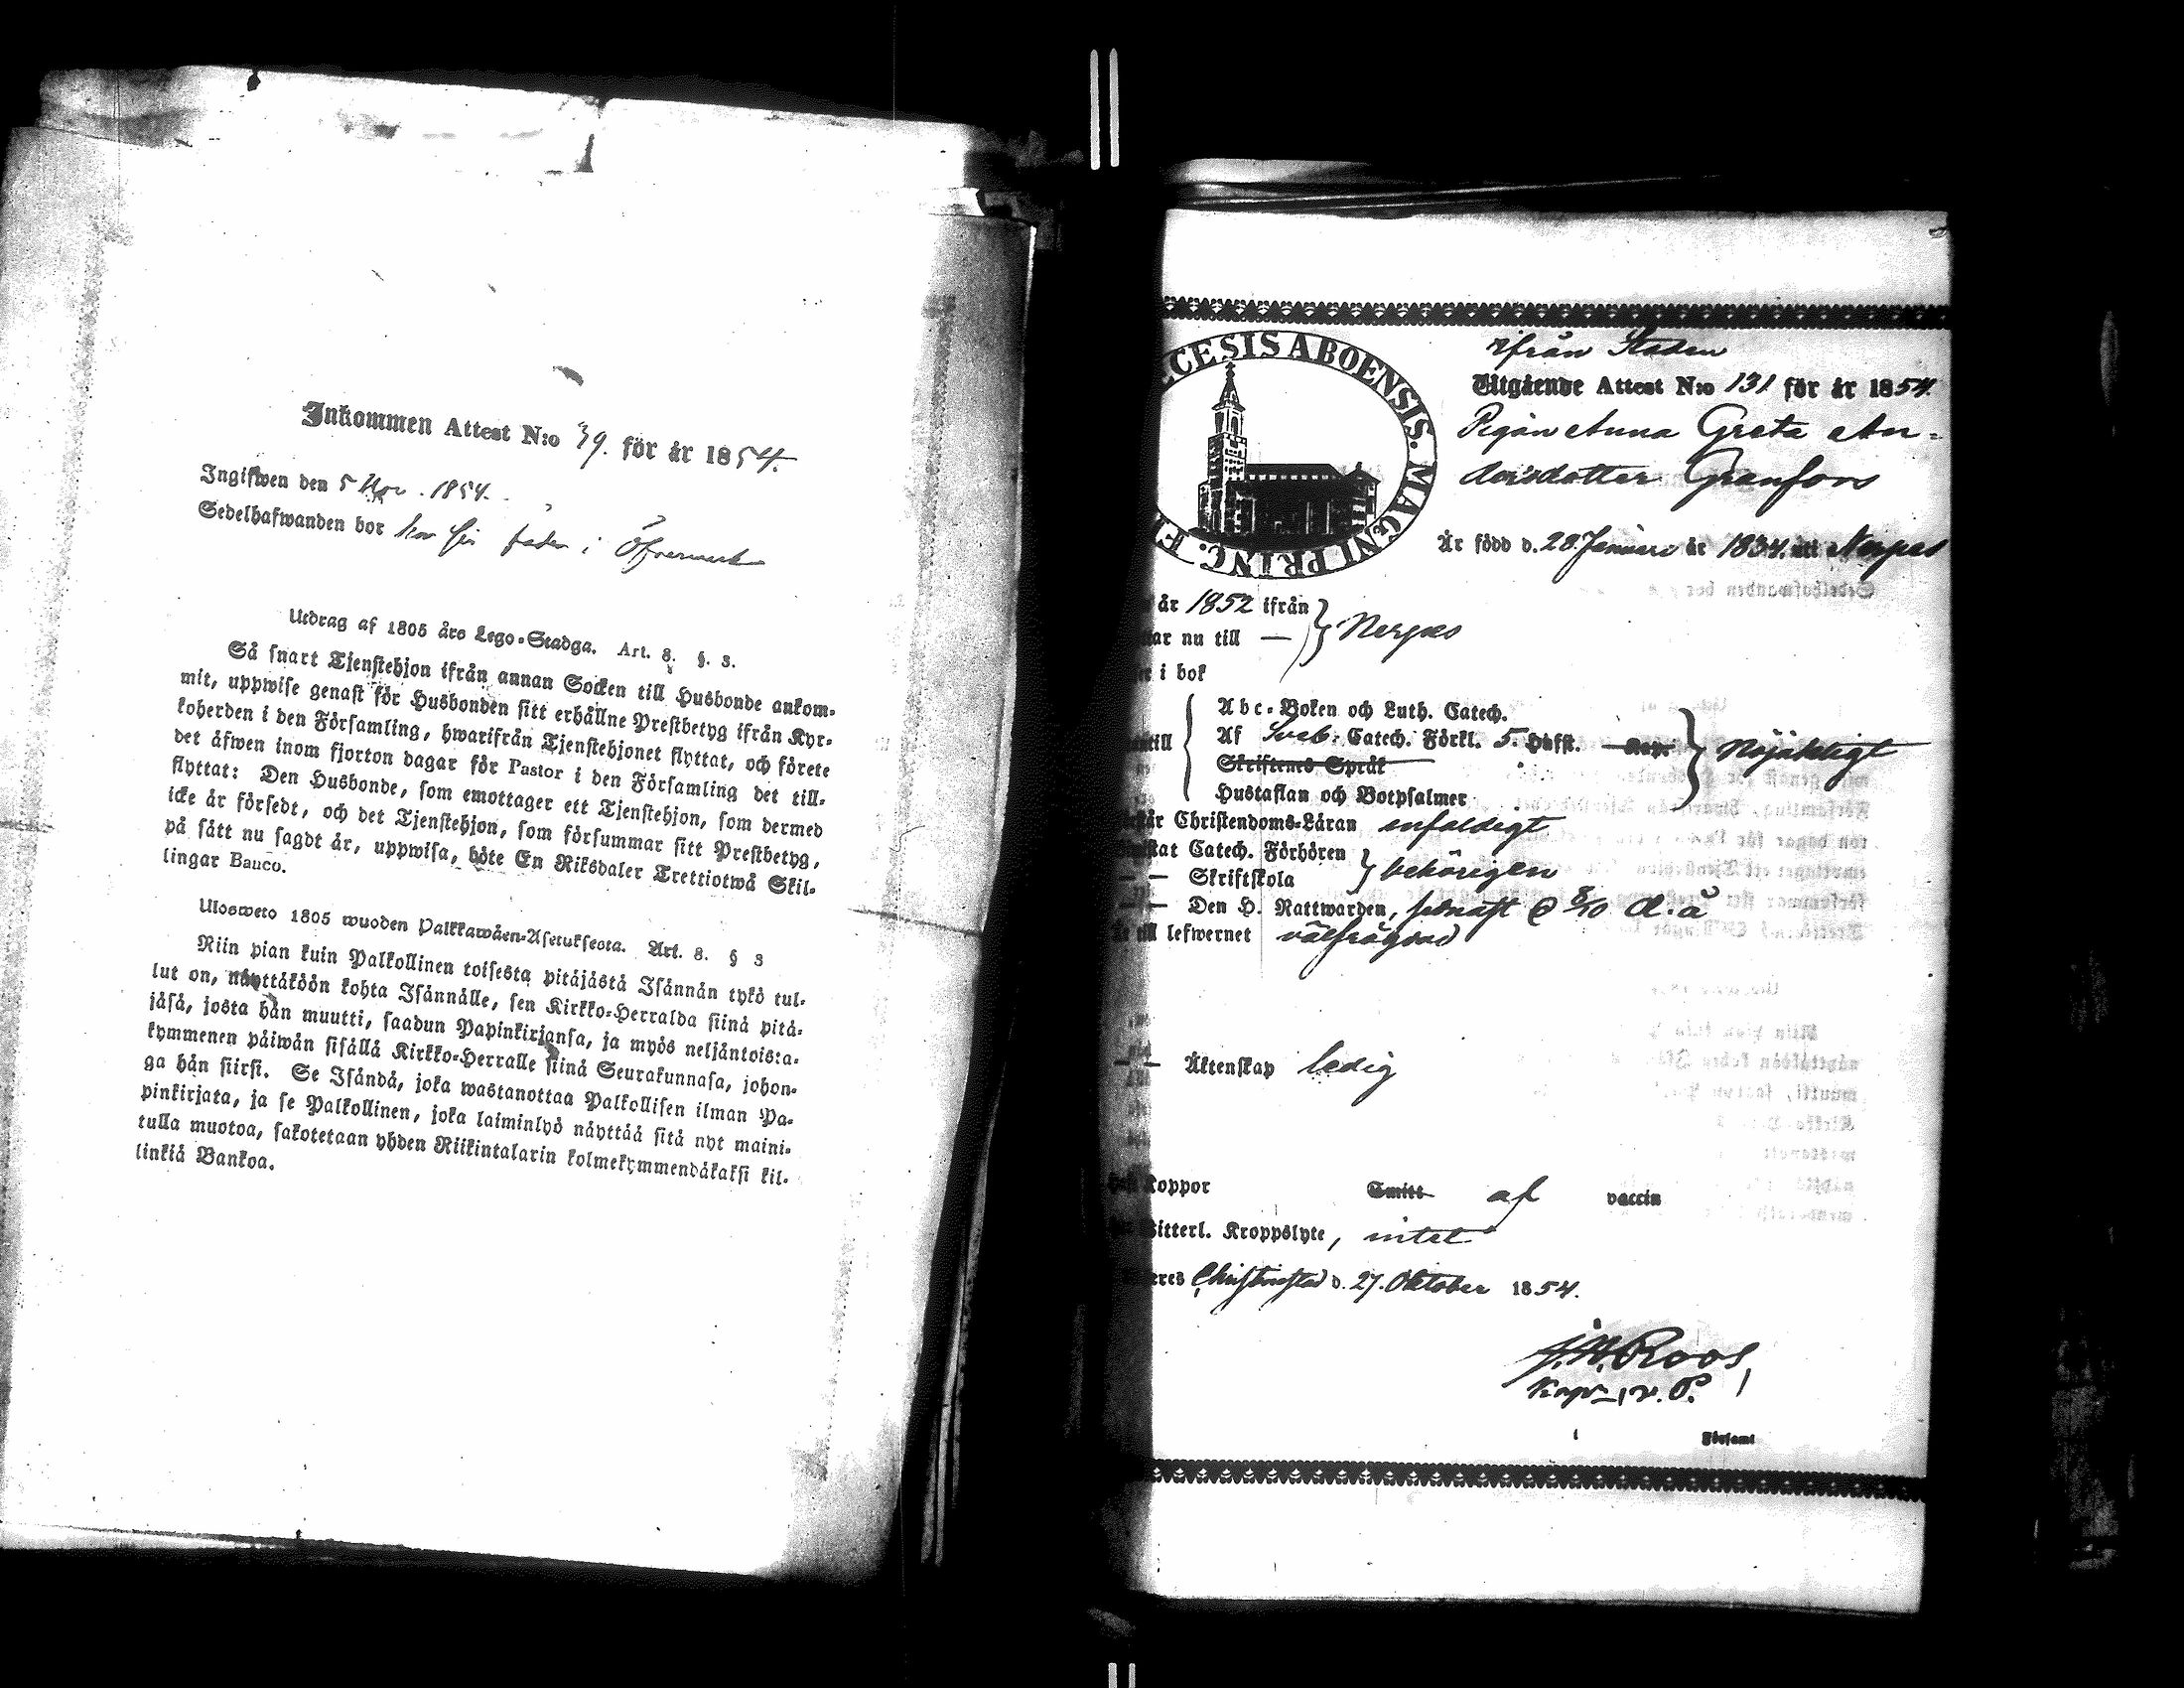 Inkommen Attest N:o 39. för år 1854.
Ingifwen den 5 Nov. 1854.
Sedelhafwanden bor hos sin fader i Öfvermark
Utdrag af 1805 års Lego-Stadga. Art. 8. §. 3.
Så snart Tjenstehjon ifrån annan Socken till Husbonde ankom-
mit, uppwise genast för Husbonden sitt erhållne Prestbetyg ifrån Kyr-
koherden i den Församling, hwarifrån Tjenstehjonet flyttat, och förete
det äfwen inom fjorton dagar för Pastor i den Församling det till-
flyttat: Den Husbonde, som emottager ett Tjenstehjon, som dermed
icke är försedt, och det Tjenstehjon, som försummar sitt Prestbetyg,
på sätt nu sagdt är, uppwisa, böte En Riksdaler Trettiotwå Skil-
lingar Banco.
Ulosweto 1805 wuoden Palkkawäen-Asetuksesta. Art. 8. § 3
Niin pian kuin Palkollinen toisesta pitäjästä Isännän tykö tul-
lut on, näyttäköön kohta Isännälle, sen Kirkko-Herralda siinä pitä-
jäsä, josta hän muutti, saadun Papinkirjansa, ja myös neljäntoista-
kymmenen päiwän sisällä Kirkko-Herralle siinä Seurakunnasa, johon-
ga hän siirsi. Se Isändä, joka wastanottaa Palkollisen ilman Pa-
pinkirjata, ja se Palkollinen, joka laiminlyö näyttää sitä nyt maini-
tulla muotoa, sakotetaan yhden Riikintalarin kolmekymmendäkaksi kil-
linkiä Bankoa.
CESIS ABOENSIS. MAGNI PRINC. F
ifrån Staden
Utgående Attest N:o 131 för år 1854.
Pigan Anna Greta An-
dersdotter Granfors
Är född d. 28 Januari år 1834. uti Nerpes
år 1852 ifrån
ar nu till — } Nerpes
i bok
Abc-Boken och Luth. Catech.
till Af Sveb. Catech. Förkl. 5. Hufst. Kap: } Nöjaktigt
Skriftenes Språk
Hustaflan och Botpsalmer
år Christendoms-Läran enfaldigt
kat Catech. Förhören
— — Skriftskola } behörigen
— — Den H. Nattwarden, senast d 8/10 d. å
till lefwernet välfrägdad
— — Äktenskap ledig
Koppor Smitt af vaccin
itterl. Kroppslyte, intet
eres Christinestad d. 27. Oktober 1854.
J. H. Roos,
Kapl., v. P.
i Församl